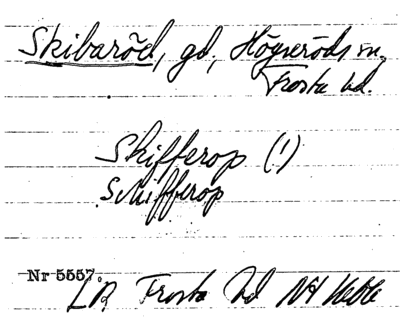 Skibaröd, gd, Högseröds sn,
Frosta hd.
Skifferop (!)
Schifferop
Nr 5557.
LR Frosta hd